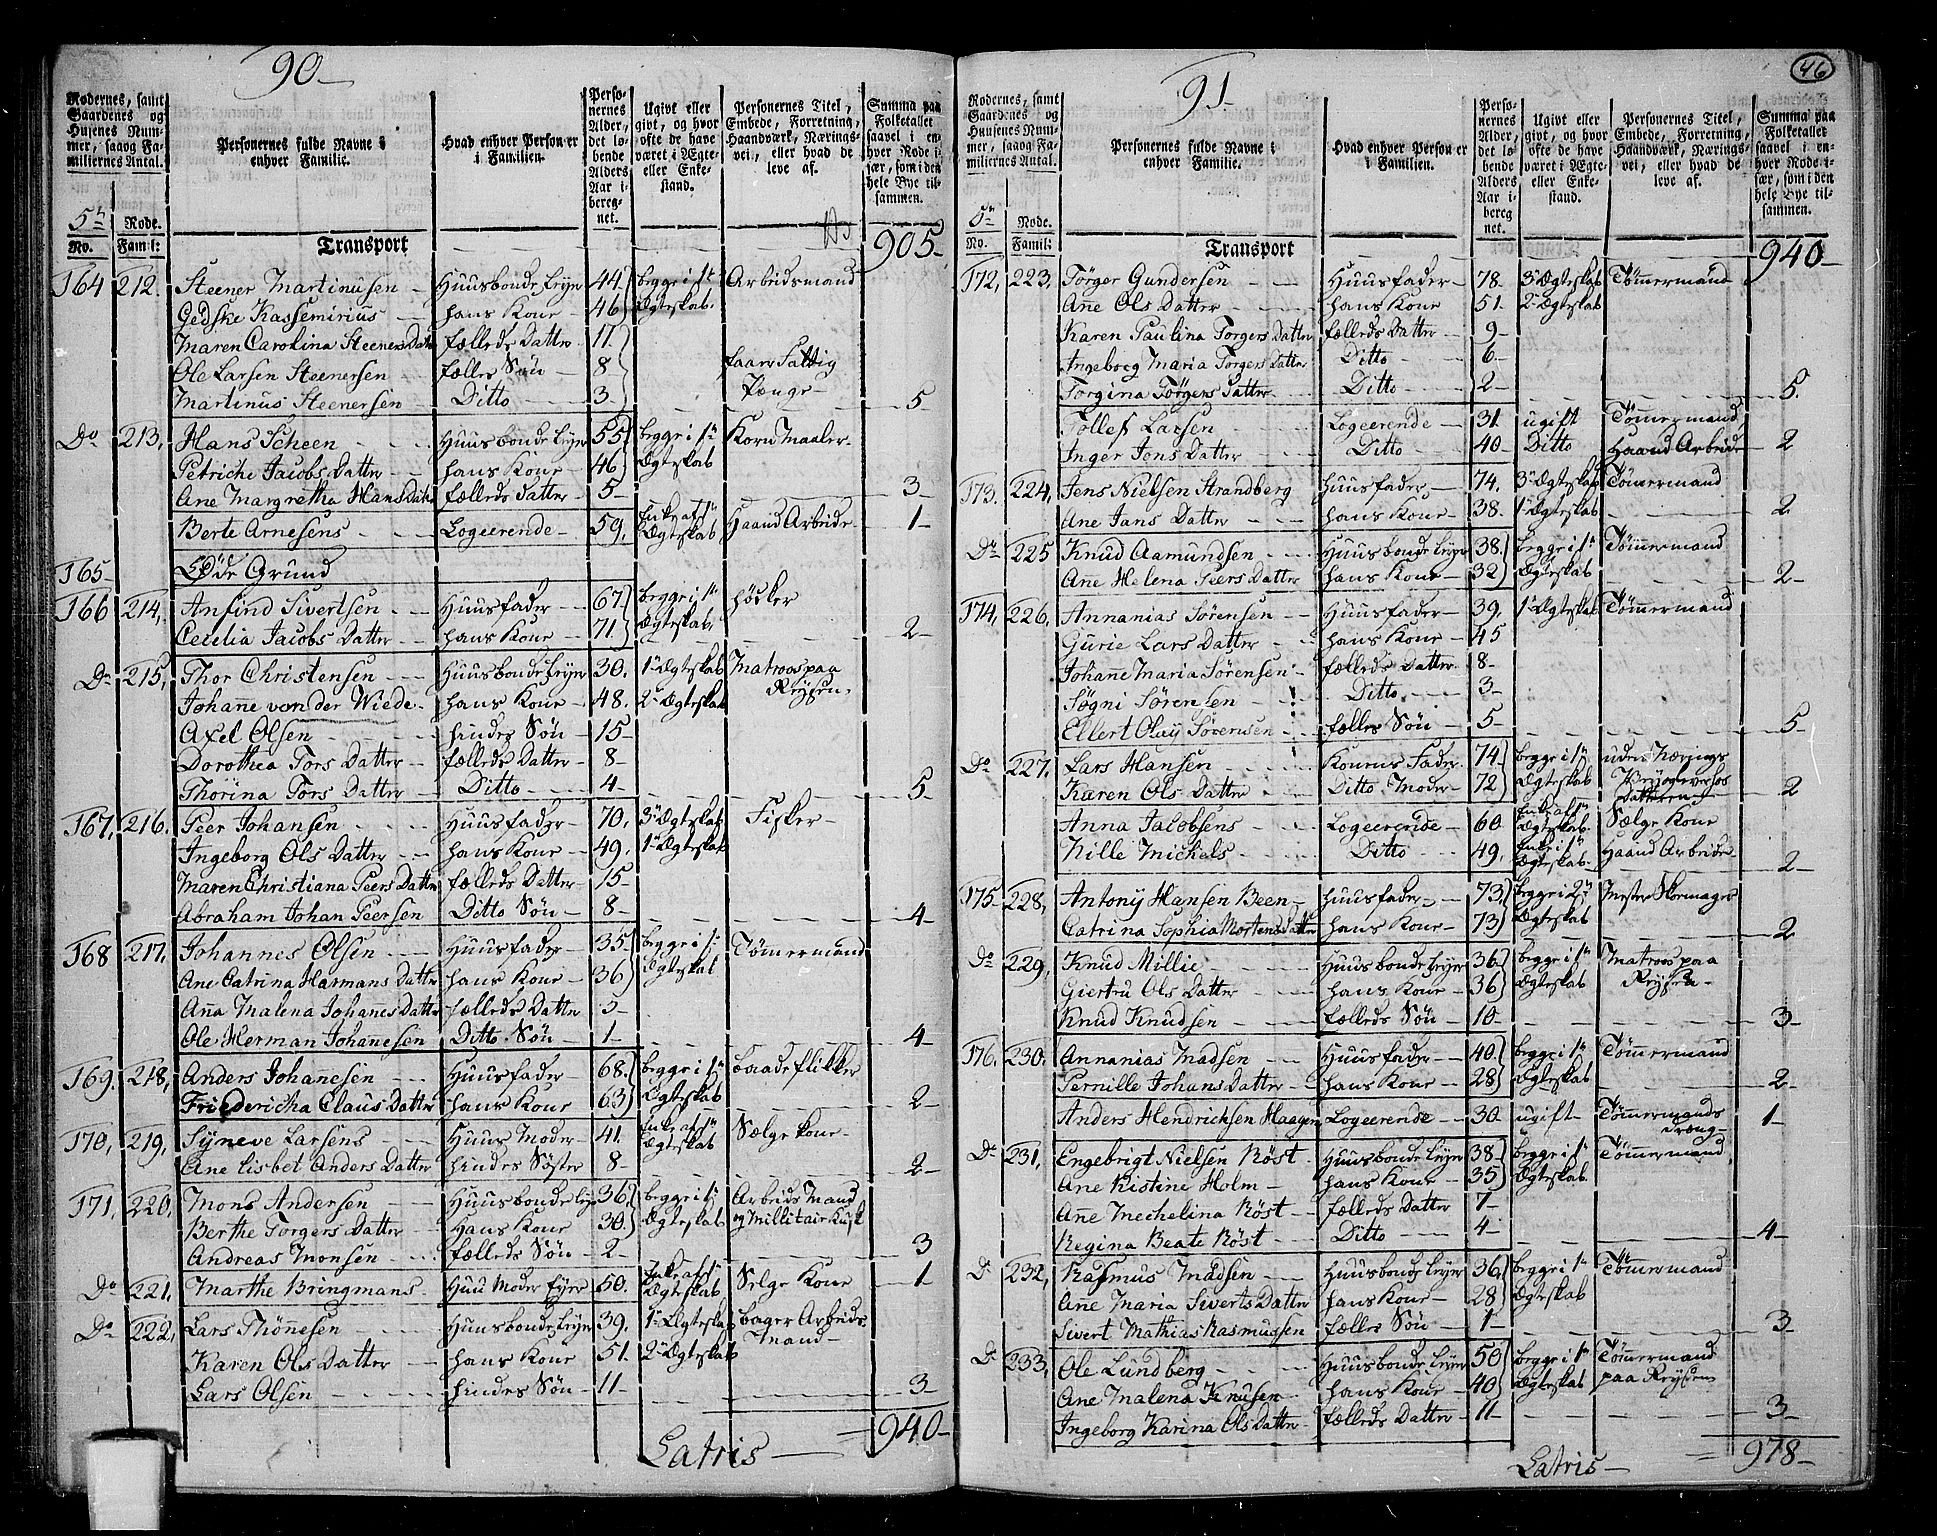 90-
Rodernes, samt Gaardenes og Husenes Nummer, saavog Familiernes Antal.
Personernes fulde Navne i enhver Familie.
Hvad enhver Person er i Familien.
Personernes Alder, det løbende Alders Aar iberegnet.
Ugivt eller givt, og hvor ofte de have været i Ægte- eller Enkestand.
Personernes Titel, Embede, Forretning, Haandværk, Næringsvei, eller hvad de leve af.
Summa paa Folketallet saavel i enhver Rode især, som i den hele Bye tilsammen.
5te Rode.
No. Famil:
Transport 905-
164 212. Steener Martinusen Huusbonde Leyer 44 begge i 1te Ægteskab. Arbeidsmand
Gedske Kassemirius hans Kone 46
Maren Carolina Steeners Datter fælleds Datter 11
Ole Larsen Steenersen fælles Søn 8 faaer Fattig Penge
Martinus Steenersen Ditto 3 5
Do 213, Hans Scheen Huusbonde Leyer 55 begge i 1te Ægteskab Korn Maaler
Petriche Jacobs Datter hans Kone 46
Ane Margretha Hans Datter fælleds Datter 5 3
Berte Arnesens Logeerende 59, Enke af 1te Ægteskab, Haand Arbeide 1
165 Øde Grund
166 214, Ansind Sivertsen Huusfader 67 begge i 1te Ægteskab, høcker
Cecelia Jacobs Datter hans Kone 71 2
Do 215, Thor Christensen Huusbonde Leyer 30. 1te Ægteskab Matroos paa Reysen.
Johanne von der Wiede hans Kone 48. 2de Ægteskab
Axel Olsen hindes Søn 15
Dorothea Tors Datter fælleds Datter 8
Thorina Tors Datter Ditto 4 5
167, 216. Peer Johansen Huusfader 70, 3de Ægteskab Fisker
Ingeborg Ols Datter hans Kone 49. 1te Ægteskab
Maren Christiana Peers Datter fælleds Datter 15
Abraham Johan Peersen Ditto Søn 8 4
168 217, Johannes Olsen Huusfader 35 begge i 1te Ægteskab Tømmermand
Ane Catrina Harmans Datter hans Kone 36
Anna Malena Johannes Datter fælleds Datter 3
Ole Herman Johannesen Ditto Søn 1 4
169. 218, Anders Johanesen Huusfader 68 begge i 1te Ægteskab baadeflikker
Friedericha Claus Datter hans Kone 63 2
170, 219, Syneve Larsens Huus Moder 41. Enke af 1te Ægteskab Sælge kone
Ane Lisbet Anders Datter hindes Søster 8 2
171, 220, Mons Andersen Huusbonde Leyer 36 begge i 1te Ægteskab Arbeids Mand og Millitair Kusk
Berthe Torgers Datter Hans Kone 30
Andreas Monsen fælleds Søn 2 3
Do 221, Marthe Bringmans Huus Moder Eyer 50. Enke af 1te Ægteskab Selge Kone 1
Do 222, Lars Thönnesen Huusbonde Leyer 39. 1te Ægteskab bager Arbeids Mand
Karen Ols Datter hans Kone 51. 2de Ægteskab
Lars Olsen hindes Søn 11 3
Latris = 940-
46
91-
Rodernes, samt Gaardenes og Husenes Nummer, saavog Familiernes Antal.
Personernes fulde Navne i enhver Familie.
Hvad enhver Person er i Familien.
Personernes Alder, det løbende Alders Aar iberegnet.
Ugivt eller givt, og hvor ofte de have været i Ægte- eller Enkestand.
Personernes Titel, Embede, Forretning, Haandværk, Næringsvei, eller hvad de leve af.
Summa paa Folketallet saavel i enhver Rode især, som i den hele Bye tilsammen.
5te Rode.
No. Famil:
Transport 940-
172, 223, Törger Gundersen Huusfader 78. 3de Ægteskab Tømmermand
Ane Ols Datter hans Kone 51. 2de Ægteskab
Karen Paulina Torgers Datter fælleds Datter 9
Ingeboeg Maria Torgers Datter Ditto 6
Torgina Törgers Datter Ditto 2 5.
Tollef Larsen Logeerende 31. ugift Tømmermand
Inger Jens Datter Ditto 40 Ditto Haand Arbeide 2
173. 224, Jens Nielsen Strandberg Huusfader 74. 3de Ægteskab Tømmermand
Ane Jans Datter hans Kone 38. 1te Ægteskab 2
Do 225 Knud Aamundsen Huusbonde Leyer 38 begge i 1te Ægteskab Tømmermand
Ane Helena Peers Datter hans Kone 32 2
174, 226, Annanias Sørensen Huusfader 39. 1te Ægteskab Tømmermand
Gurie Lars Datter hans Kone 45
Johanne Maria Sørensen fælleds Datter 8
Søgni Sørensen Ditto 3
Ellert Olay Sørensen fælles Søn 5 5
Do 227, Lars Hansen Konens Fader 74 begge i 1te Ægteskab uden Nærings
Karen Ols Datter Ditto Moder 72 2
Anna Jacobsens Logeerende 60 Enke af 1te Ægteskab. Sælge Kone
Nille Michels Ditto 49. Enke i 1te Ægteskab Haand Arbeide 2
175 228, Antonj Hansen Been Huusfader 73 begge i 2de Ægteskab Mester Skomager
Catrina Sophia Mortens Datter hans Kone 73 2
Do 229, Knud Millie Huusbonde Leyer 36 begge i 1te Ægteskab Matroos paa Reysen
Giertru Ols Datter hans Kone 36
Knud Knudsen fælleds Søn 10 3
176, 230. Annanias Madsen Huusfader 40 begge i 1te Ægteskab Tømmermand
Pernille Johans Datter hans Kone 28 2
Anders Hendrichsen Haagen Logeerende 30 ugift Tømmermands Dreng 1
Do 231, Engebrigt Nielsen Röst Huusbonde Leyer 38 begge i 1te Ægteskab. Tømmermand
Ane Kistine Holm hans Kone 35
Ane Mechelina Röst fælleds Datter 7
Regina Beate Röst Ditto 4 4
Do 232, Rasmus Madsen Huusbonde Leyer 36 begge i 1te Ægteskab Tømmermand
Ane Maria Siverts Datter hans Kone 28
Sivert Mathias Rasmussen fælles Søn 1 3
Do 233, Ole Lundberg Huusbonde Leyer 50 begge i 1te Ægteskab Tømmermand paa Reysen
Ane Malena Knusen hans Kone 40
Ingeborg Karina Ols Datter fælleds Datter 11 3
Latris = 978-